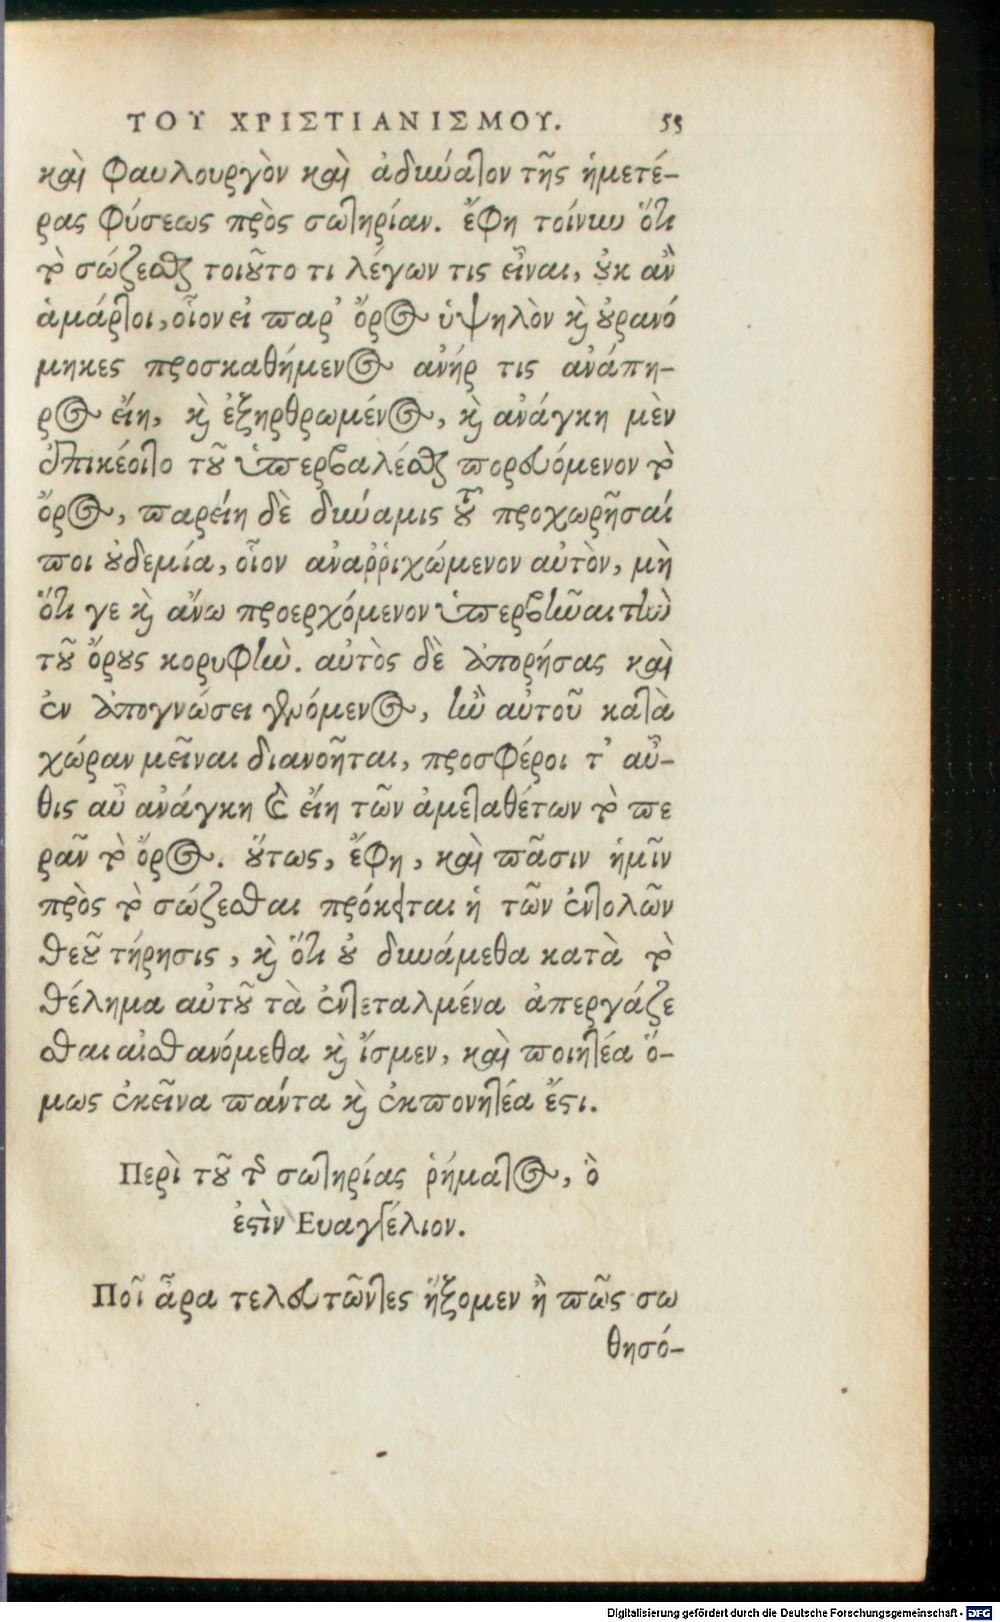 ΤΟΥ ΧΡΙΣΤΙΑΝΙΣΜΟΥ. 55
καὶ φαυλουργὸν καὶ ἀδύνατον τῆς ἡμετέ-
ρας φύσεως πρὸς σωτηρίαν. ἔφη τοίνυν ὅτι
τὸ σώζεσθαι τοιοῦτο τι λέγων τις εἶναι, οὐκ ἂν
ἁμάρτοι, οἷον εἰ παρ' ὄρος ὑψηλὸν καὶ οὐρανό
μηκες προσκαθήμενος ἀνήρ τις ἀνάπη-
ρος εἴη, καὶ ἐξηρθρωμένος, καὶ ἀνάγκη μὲν
ἐπικέοιτο τοῦ ὑπερβαλέσθαι πορευόμενον τὸ
ὄρος, παρείη δὲ δύναμις τοῦ προχωρῆσαί
ποι οὐδεμία, οἷον ἀναῤῥιχώμενον αὐτὸν, μὴ
ὅτι γε καὶ ἄνω προερχόμενον ὑπερβῆναι τὴν
τοῦ ὄρους κορυφήν. αὐτὸς δὲ ἀπορήσας καὶ
ἐν ἀπογνώσει γενόμενος, ἢν αὐτοῦ κατὰ
χώραν μεῖναι διανοῆται, προσφέροι τ' αὖ-
θις αὖ ἀνάγκη καὶ εἴη τῶν ἀμεταθέτων τὸ πε
ρᾶν τὸ ὄρος. οὕτως, ἔφη, καὶ πᾶσιν ἡμῖν
πρὸς τὸ σώζεσθαι πρόκειται ἡ τῶν ἐντολῶν
θεοῦ τήρησις, καὶ ὅτι οὐ δυνάμεθα κατὰ τὸ
θέλημα αὐτοῦ τὰ ἐντεταλμένα ἀπεργάζε
σθαι αἰσθανόμεθα καὶ ἴσμεν, καὶ ποιητέα ὅ-
μως ἐκεῖνα πάντα καὶ ἐκπονητέα ἔστι.
Περὶ τοῦ τῆς σωτηρίας ῥήματος, ὃ
ἐστὶν Ευαγγέλιον.
Ποῖ ἆρα τελευτῶντες ἥξομεν ἢ πῶς σω
θησό-
Digitalisierung gefördert durch die Deutsche Forschungsgemeinschaft - DFG